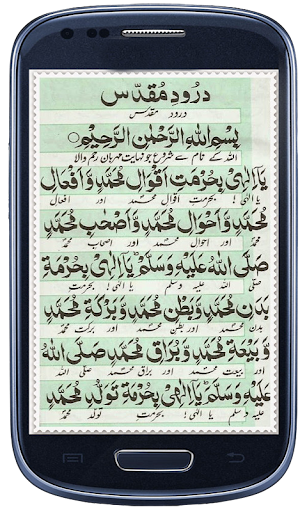 درودِ مُقدّس
درود مقدس
بِسْمِ اللهِ الرَّحْمٰنِ الرَّحِيْمِ
اللہ کے نام سے شروع جو نہایت مہربان رحم والا
يَآ اِلٰهِيْ بِحُرْمَتِ اَقْوَالِ مُحَمَّدٍ وَّ اَفْعَالِ
یا الٰہی! بحرمت اقوال محمد اور افعال
مُحَمَّدٍ وَّ اَحْوَالِ مُحَمَّدٍ وَّ اَصْحٰبِ مُحَمَّدٍ
محمد اور احوال محمد اور اصحاب محمد
صَلَّى اللهُ عَلَيْهِ وَسَلَّمَ ؕ يَآ اِلٰهِيْ بِحُرْمَةِ
صلی اللہ علیہ وسلم یا الٰہی! بحرمت
بَدَنِ مُحَمَّدٍ وَّ بَطْنِ مُحَمَّدٍ وَّ بَرَكَةِ مُحَمَّدٍ
بدن محمد اور بطن محمد اور برکت محمد
وَّ بَيْعَةِ مُحَمَّدٍ وَّ بُرَاقِ مُحَمَّدٍ صَلَّى اللهُ
اور بیعت محمد اور براق محمد صلی اللہ
عَلَيْهِ وَسَلَّمَ ؕ يَآ اِلٰهِيْ بِحُرْمَةِ تَوَلُّدِ مُحَمَّدٍ
علیہ وسلم یا الٰہی! بحرمت تولد محمد